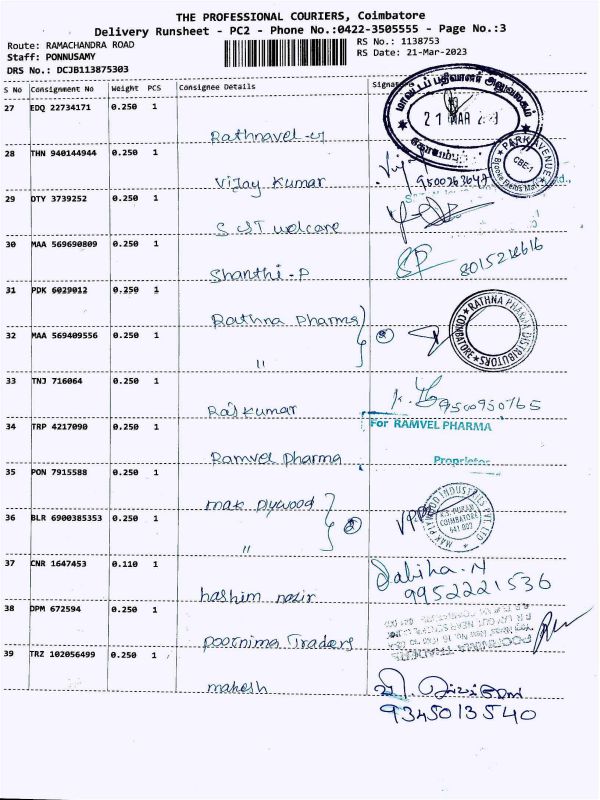 THE PROFESSIONAL COURIERS, Coimbatore
Delivery Runsheet - PC2 - Phone No.:0422-3505555 - Page No.:3
Route: RAMACHANDRA ROAD
RS No.: 1138753
Staff: PONNUSAMY
RS Date: 21-Mar-2023
DRS No.: DCJB113875303
S No Consignment No Weight PCS Consignee Details Signature
27 EDQ 22734171 0.250 1
மாவட்டப் பதிவாளர் அலுவலகம்
21 MAR
Rathnavel
28 THN 940144944 0.250 1
PARK AVENUE
CBE-1
Brooke Fields Mall
Vijay Kumar
29 DTY 3739252 0.250 1
30 MAA 569690809 0.250 1
Shanthi-P
31 PDK 6029012 0.250 1
Rathna pharma
RATHNA PHARMA DISTRIBUTORS
COIMBATORE
32 MAA 569409556 0.250 1
"
33 TNJ 716064 0.250 1
Rajkumar
9500950765
34 TRP 4217090 0.250 1
For RAMVEL PHARMA
Ramvel pharma
Proprietor
35 PON 7915588 0.250 1
mak plywood
MAK PLYWOOD INDUSTRIES PVT. LTD
COIMBATORE
641 002
36 BLR 6900385353 0.250 1
"
37 CNR 1647453 0.110 1
Sabiha.N
9952221536
hashim nazir
38 DPM 672594 0.250 1
poornima Traders
POORNIMA TRADERS
39 TRZ 102056499 0.250 1
mahesh
9345013540